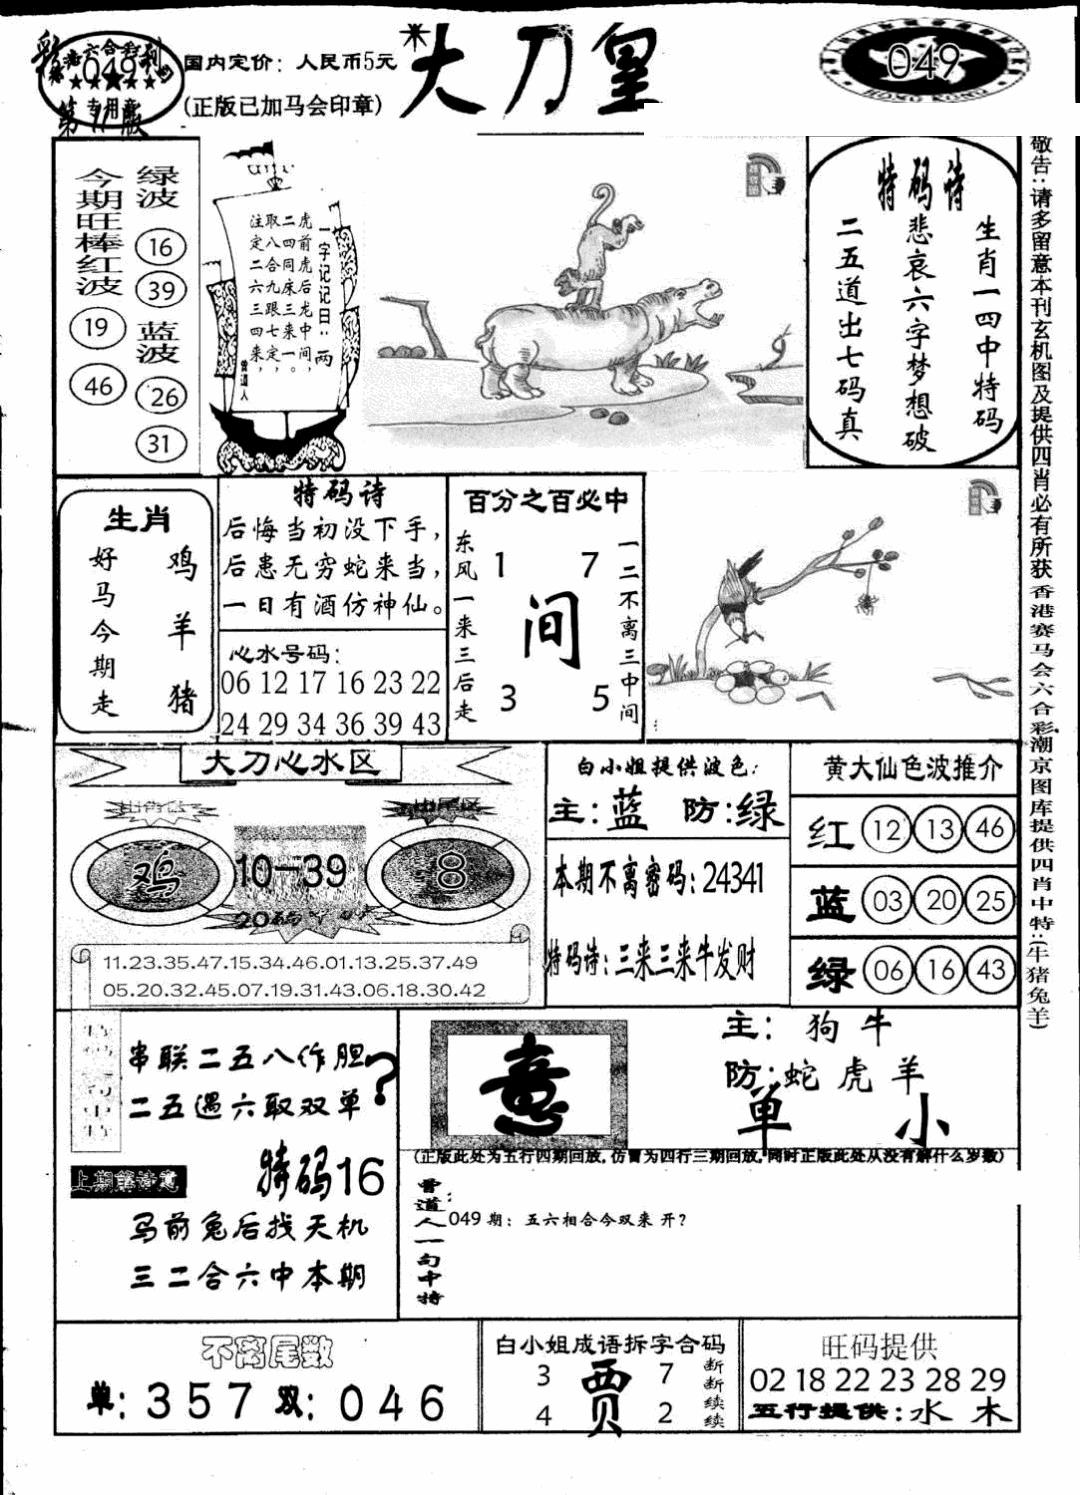 彩
香港六合彩利
049
专用章
第11版
国内定价：人民币5元
(正版已加马会印章)
大刀皇
049
HONG KONG
今期旺棒红波
19
46
绿波
16
39
蓝波
26
31
一字记记日：两
虎前虎后龙中间，
二四同床三来一。
取八合九跟七定，
注定二六三四来，
曾道人
特码诗
生肖一四中特码
悲哀六字梦想破
二五道出七码真
敬告：请多留意本刊玄机图及提供四肖必有所获香港赛马会六合彩潮京图库提供四肖中特：(牛猪兔羊)
生肖
好马今期走
鸡羊猪
特码诗
后悔当初没下手，
后患无穷蛇来当，
一日有酒仿神仙。
心水号码：
06 12 17 16 23 22
24 29 34 36 39 43
百分之百必中
东风一来三后走
1 7
间
3 5
一二不离三中间
大刀心水区
鸡
10-39
20码
8
11.23.35.47.15.34.46.01.13.25.37.49
05.20.32.45.07.19.31.43.06.18.30.42
白小姐提供波色：
主：蓝 防：绿
本期不离密码：24341
特码诗：三来三来牛发财
黄大仙色波推介
红 12 13 46
蓝 03 20 25
绿 06 16 43
串联二五八作胆
二五遇六取双单
?
特码16
上期解诗意
马前兔后找天机
三二合六中本期
意
主：狗牛
防：蛇虎羊
单 小
(正版此处为五行四期回放,仿冒为四行三期回放,同时正版此处从没有解什么岁数)
曾道人一句中特：
049期：五六相合今双来 开?
不离尾数
单：357 双：046
白小姐成语拆字合码
3 7
贾
4 2
断断续续
旺码提供
02 18 22 23 28 29
五行提供：水 木